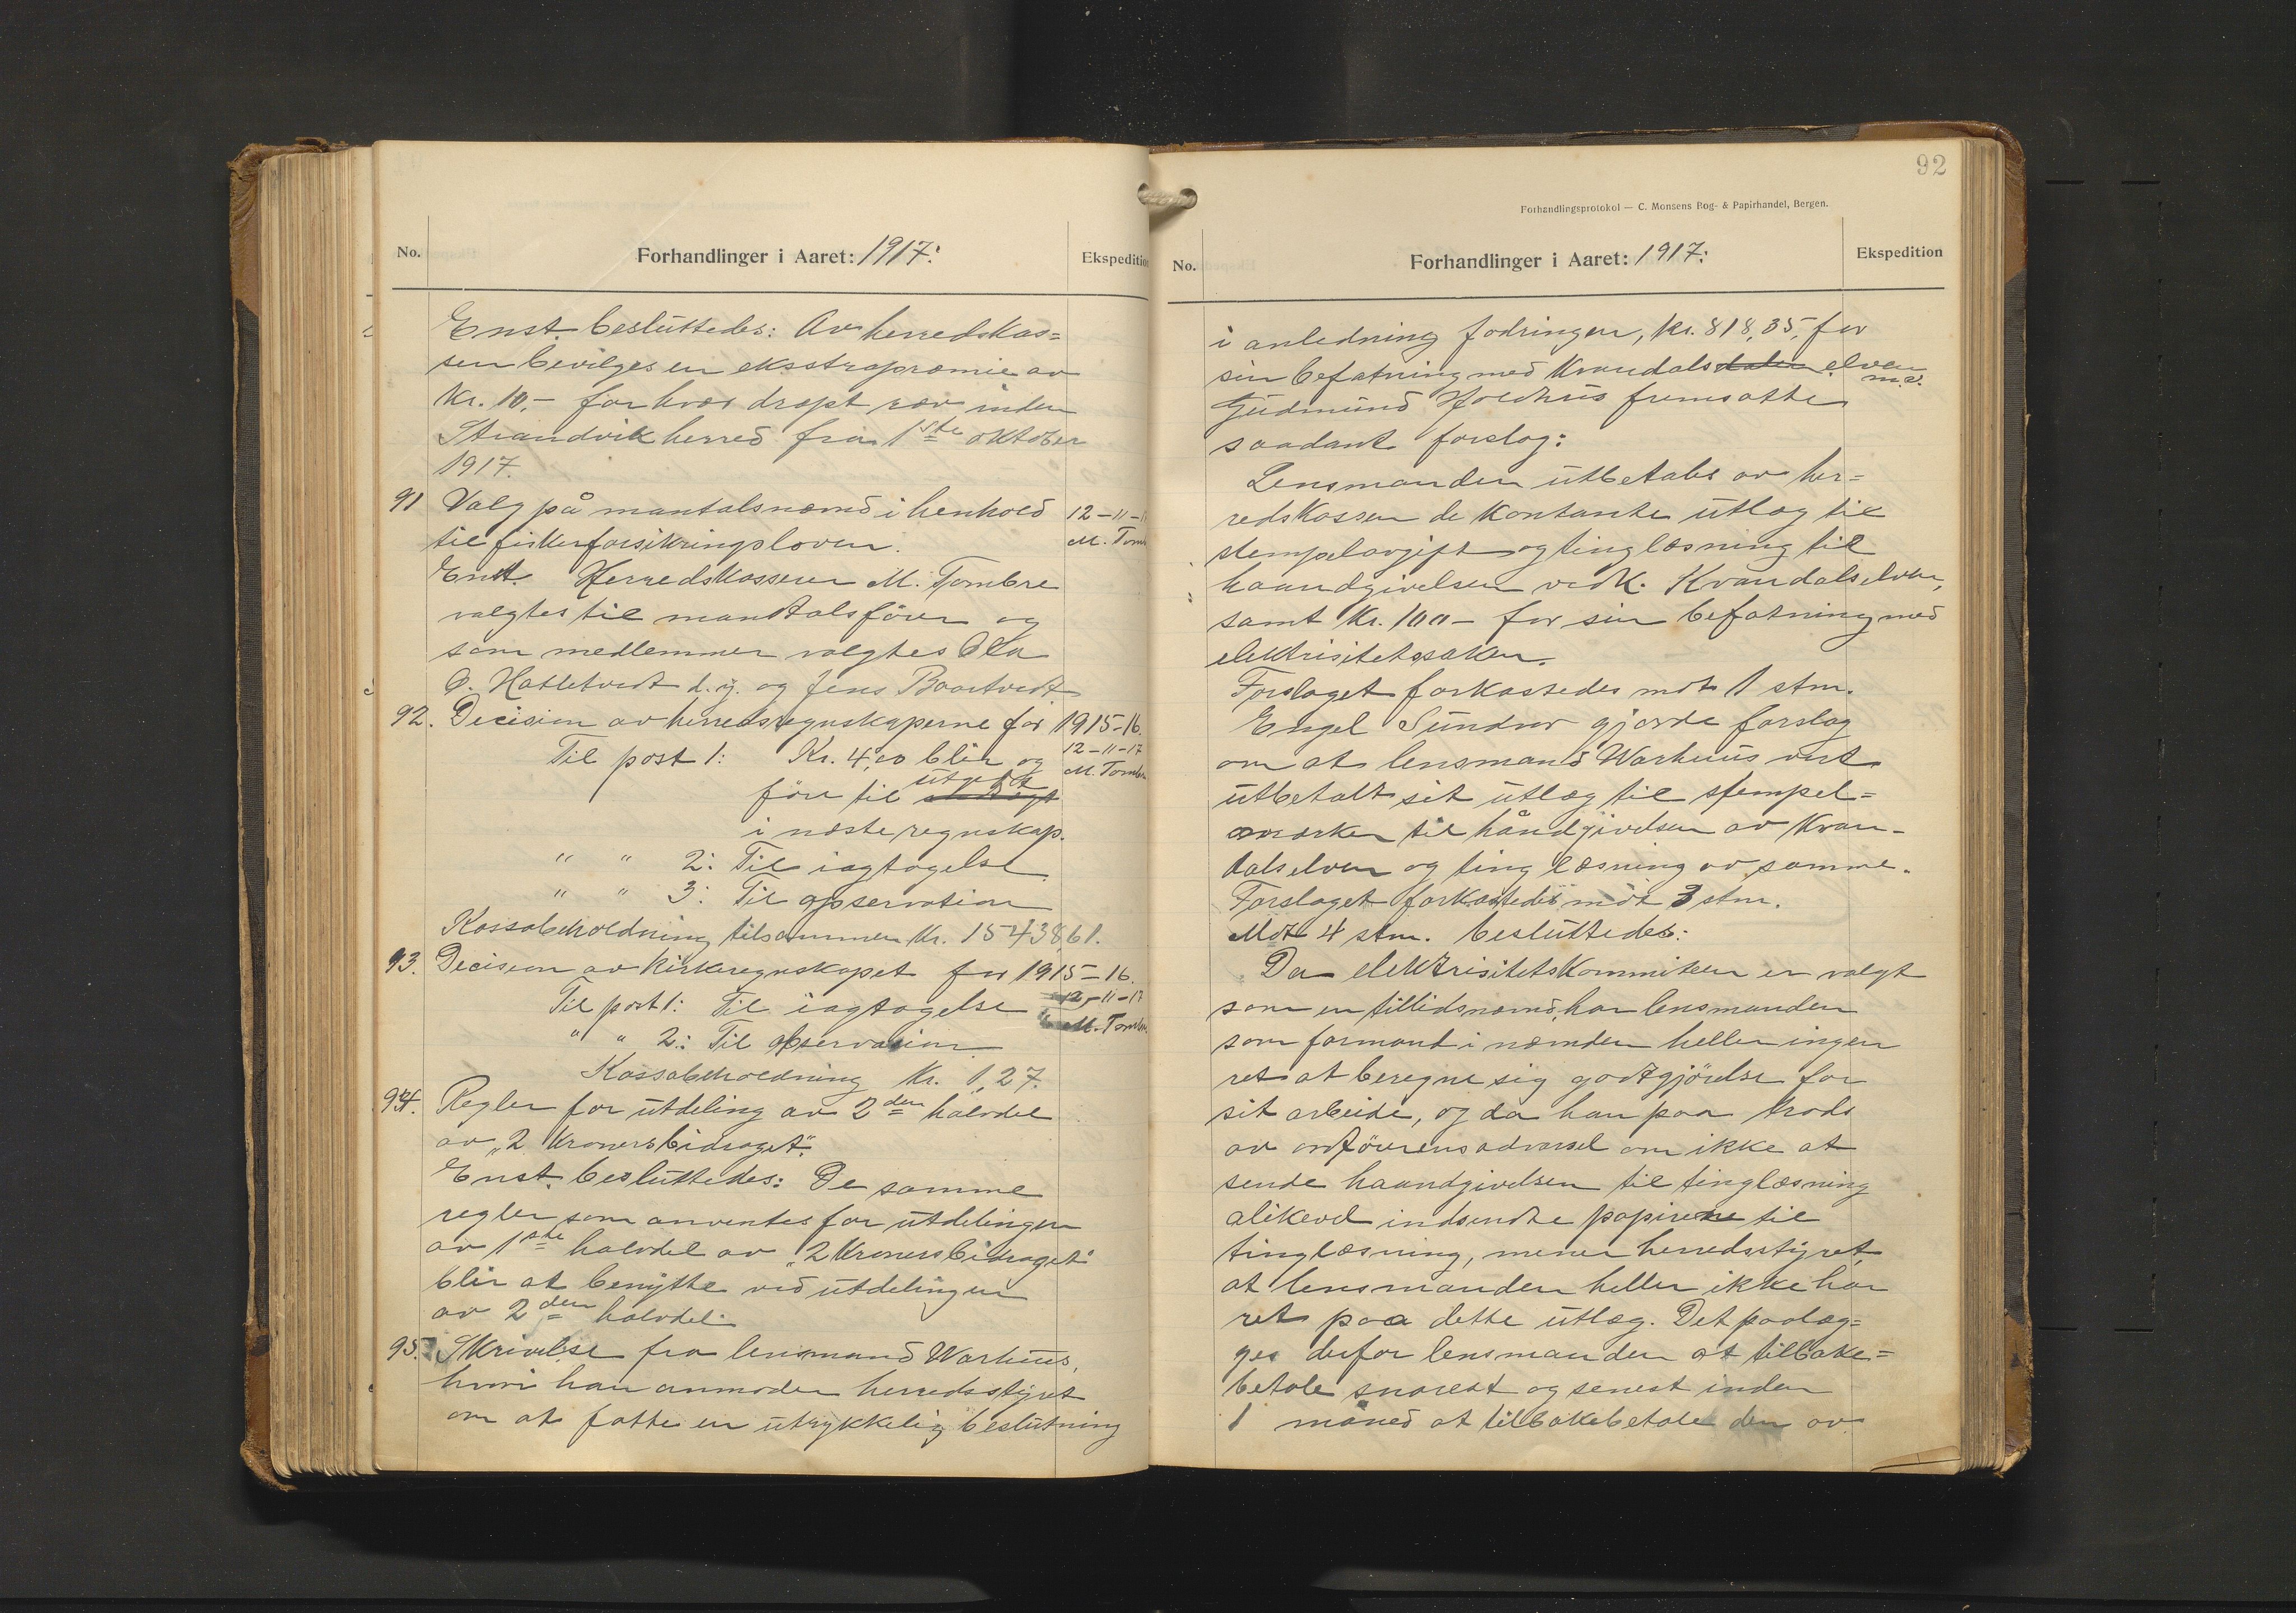 No.
Forhandlinger i Aaret: 1917.
Ekspedition
Enst. besluttedes: Av herredskas=
sen bevilges en eksstrapræmie av
Kr. 10,- for hver dræpt ræv inden
Strandvik herred fra 1ste oktober
1917.
91 Valg på mantalsnæmd i henhold 12-11-1
til fiskerforsikringsloven. M. Tom
Enst. Herredskasserer M. Tombre
valgtes til mandtalsfører og
som medlemmer valgtes Ola
O. Hatletvedt d.y. og Jens Baartvedt
92. Decision av herredsregnskaperne for 1915-16.
Til post 1: Kr. 4,00 blir og 12-11-17
føre til utgift M. Tombr
i næste regnskap.
" " 2: Til iagtagelse.
" " 3: Til opservation
Kassabeholdning tilsammen Kr. 15438,61.
93. Decision av Kirkeregnskapet for 1915-16.
Til post 1: Til iagtagelse 12-11-17
" " 2: Til observasion M. Tombr
Kassabeholdning Kr. 1,27.
94. Regler for utdeling av 2den halvdel
av „2 Kronersbidraget".
Enst. besluttedes: De samme
regler som anventes for utdelingen
av 1ste halvdel av „2 Kronersbidraget"
blir at benytte ved utdelingen
av 2den halvdel.
95. Skrivelse fra lensmand Warhuus,
hvori han anmoder herredsstyret
om at fatte en utrykkelig beslutning
92
Forhandlingsprotokol — C. Monsens Bog- & Papirhandel, Bergen.
No.
Forhandlinger i Aaret: 1917.
Ekspedition
i anledning fodringen, kr. 818,35, for
sin befatning med Kvandalsdalen elven
m.v.
Gudmund Holdhus fremsatte
saadant forslag:
Lensmanden utbetales av her=
redskassen de kontante utlæg til
stempelavgift og tinglæsning til
haandgivelsen vedk. Kvandalselven,
samt Kr. 100- for sin befatning med
elektrisitetssaken.
Forslaget forkastedes mot 1 stm.
Engel Sundvor gjorde forslag
om at lensmand Warhuus vert
utbetalt sit utlæg til stempel=
mærker til håndgivelsen av Kvan-
dalselven og tinglæsning av samme.
Forslaget forkastedes mot 3 stm.
Mot 4 stm. besluttedes:
Da elektrisitetskommiteen er valgt
som en tillidsnæmd, har lensmanden
som formand i næmden heller ingen
ret at beregne sig godtgjörelse for
sit arbeide, og da han paa trods
av ordførerens advarsel om ikke at
sende haandgivelsen til tinglæsning
alikevel indsendte papirene til
tinglæsning, mener herredsstyret,
at lensmanden heller ikke har
ret paa dette utlæg. Det paalæg=
ges derfor lensmanden at tilbake=
betale snarest og senest inden
1 måned at tilbakebetale den av